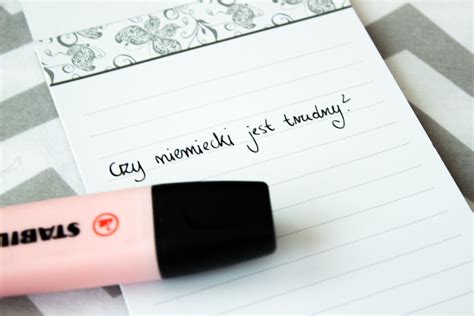 Czy niemiecki jest trudny?
STABIL